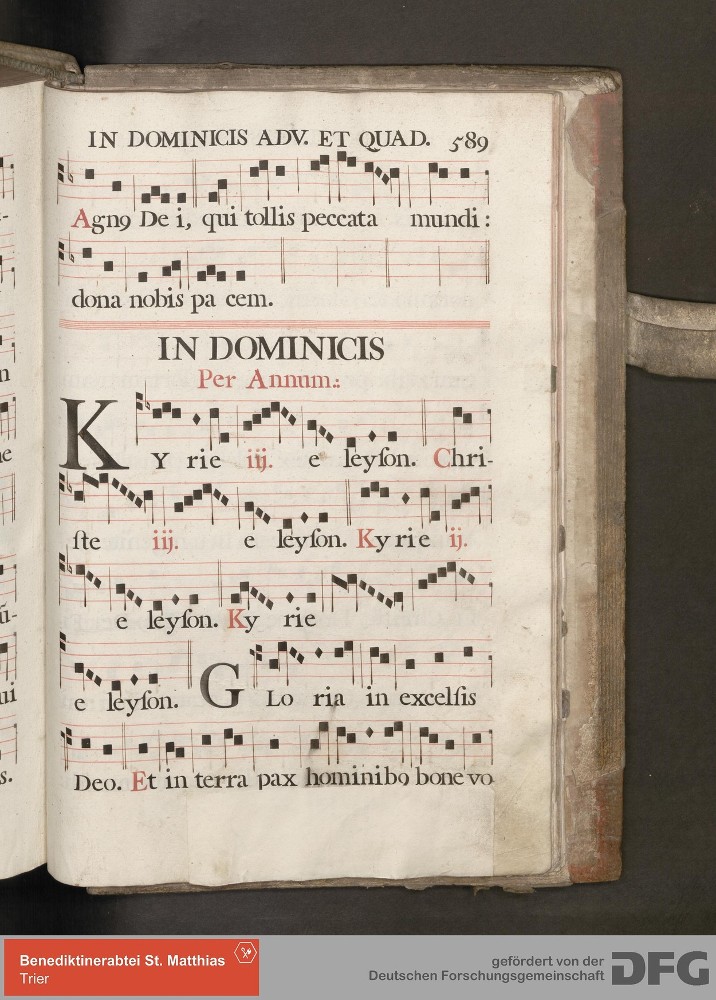 IN DOMINICIS ADV. ET QUAD. 589
Agnꝰ De i, qui tollis peccata mundi :
dona nobis pa cem.
IN DOMINICIS
Per Annum.:
KY rie iij. e leyſon. Chri-
ſte iij. e leyſon. Ky rie ij.
e leyſon. Ky rie
e leyſon. G Lo ria in excelſis
Deo. Et in terra pax hominibꝰ bone vo
Benediktinerabtei St. Matthias
Trier
gefördert von der
Deutschen Forschungsgemeinschaft
DFG